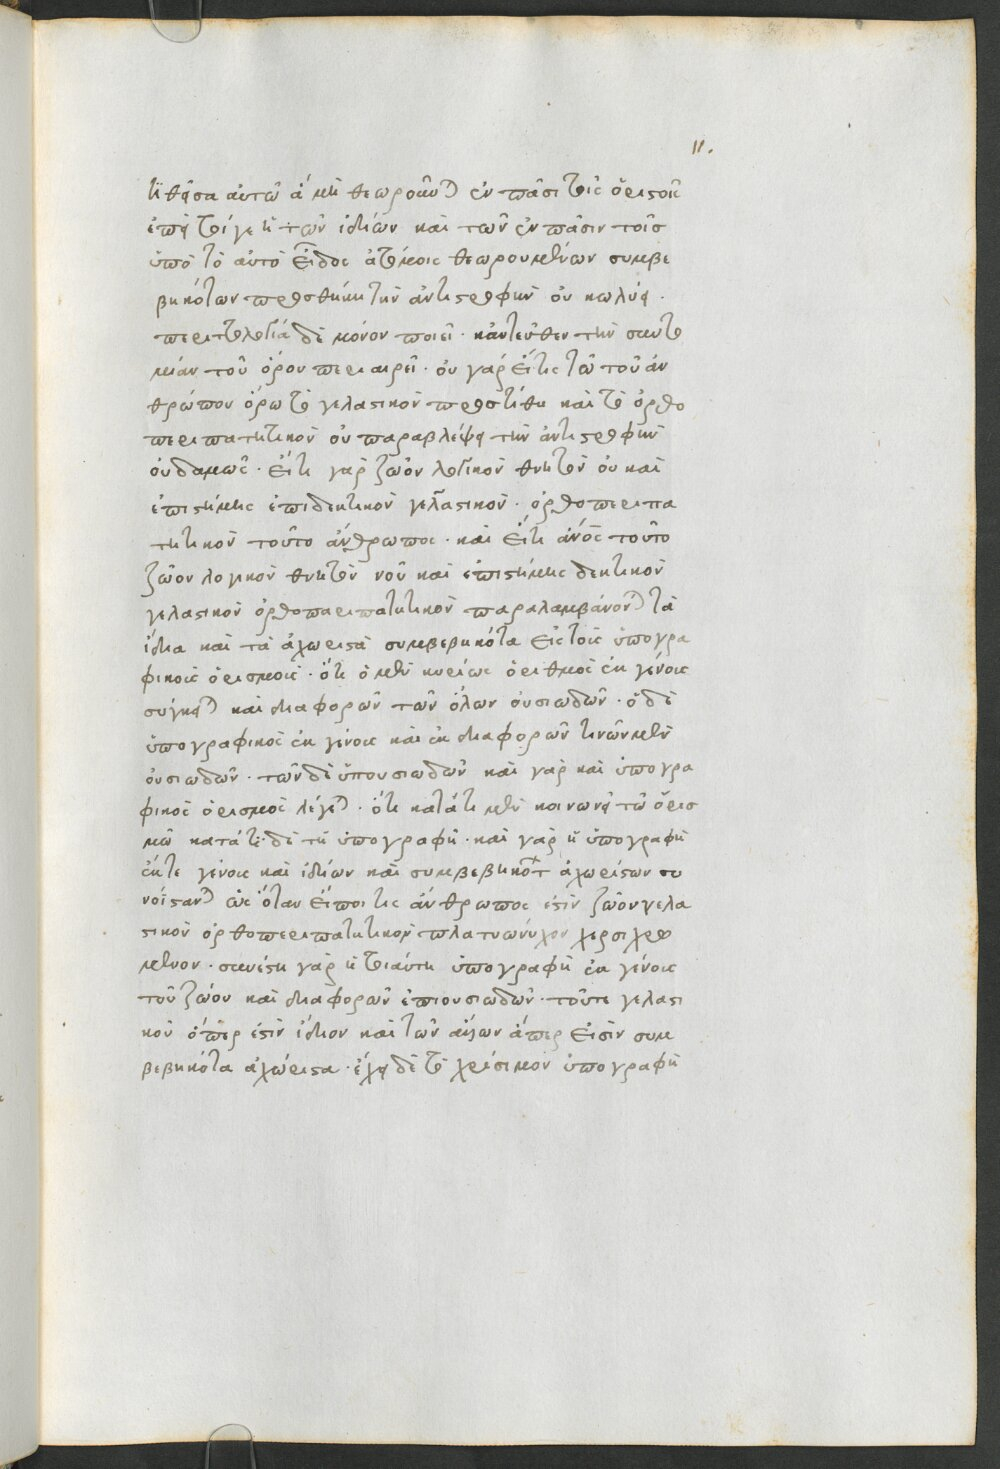 11.
τιθεῖσα αὐτῶ ἃ μὴ θεωροῦνται ἐν πᾶσι τοῖς ὁριστοῖς
ἐπεὶ τοί γε ἡ τῶν ἰδίων καὶ τῶν ἐν πᾶσιν τοῖς
ὑπὸ τὸ αὐτὸ εἶδος ἀτόμοις θεωρουμένων συμβε
βηκότων προσθήκη τὴν ἀντιστροφὴν οὐ κωλύει.
περιττολογίαν δὲ μόνον ποιεῖ. κἀντεῦθεν τὴν συντο
μίαν τοῦ ὅρου περιαιρεῖ. οὐ γὰρ εἴ τις τῶ τοῦ ἀν
θρώπου ὅρω τὸ γελαστικὸν προστίθει καὶ τὸ ὀρθο
περιπατητικὸν οὐ παραβλέψει τὴν ἀντιστροφὴν
οὐδαμῶς. εἴ τι γὰρ ζῶον λογικὸν θνητὸν οὐ καὶ
ἐπιστήμης ἐπιδεκτικὸν γελαστικὸν. ὀρθοπεριπα
τητικὸν τοῦτο ἄνθρωπος. καὶ εἴ τι ἄνος τοῦτο
ζῶον λογικὸν θνητὸν νοῦ καὶ ἐπιστήμης δεκτικὸν
γελαστικὸν ὀρθοπεριπατητικὸν παραλαμβάνονται τὰ
ἴδια καὶ τὰ ἀχώριστα συμβεβηκότα εἰς τοῖς ὑπογρα
φικοῖς ὁρισμοῖς. ὅτι ὁ μὲν κυρίως ὁριθμὸς ἐκ γένους
σύγκειται καὶ διαφορῶν τῶν ὅλων οὐσιωδῶν. ὁ δὲ
ὑπογραφικὸς ἐκ γένους καὶ ἐκ διαφορῶν τινῶν μὲν
οὐσιωδῶν. τῶν δὲ ὑπουσιωδῶν καὶ γὰρ καὶ ὑπογρα
φικὸς ὁρισμὸς λέγεται. ὅτι κατά τι μὲν κοινωνεῖ τῶ ὁρισ
μῶ κατά τι δὲ τῆ ὑπογραφῆ. καὶ γὰρ ἡ ὑπογραφὴ
ἔκ τε γένους καὶ ἰδίων καὶ συμβεβηκότων ἀχωρίστων συ
νίσταται ὡς ὅταν εἴποι τις ἄνθρωπός ἐστιν ζῶον γελα
στικὸν ὀρθοπεριπατητικὸν πλατυώνυχον χερσὶ χρώ
μενον. συνέστη γὰρ ἡ τοιαύτη ὑπογραφὴ ἐκ γένους
τοῦ ζώου καὶ διαφορῶν ἐπιουσιωδῶν. τοῦτε γελαστι
κοῦ ὅπερ ἐστὶν ἴδιον καὶ τῶν ἄλλων ἅπερ εἰσὶν συμ
βεβηκότα ἀχώριστα. ἔχει δὲ τὸ χρήσιμον ὑπογραφὴ